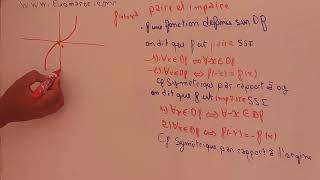 www.Examaroc.com
paire et impaire
. f une fonction définie sur Df
on dit que f est paire SSI
1) ∀x∈Df ⇔ ∀-x∈Df
2) ∀x∈Df ⇔ f(-x)=f(x)
Cf Symétrique par rapport à oy
on dit que f est impaire SSI
1) ∀x∈Df ⇔ -x∈Df
2) ∀x∈Df ⇔ f(-x)=-f(x)
Cf Symétrique par rapport à l'origine